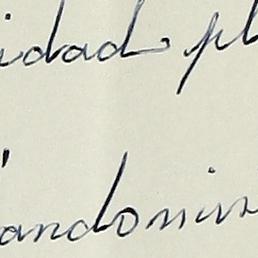 idad, pl
andonin